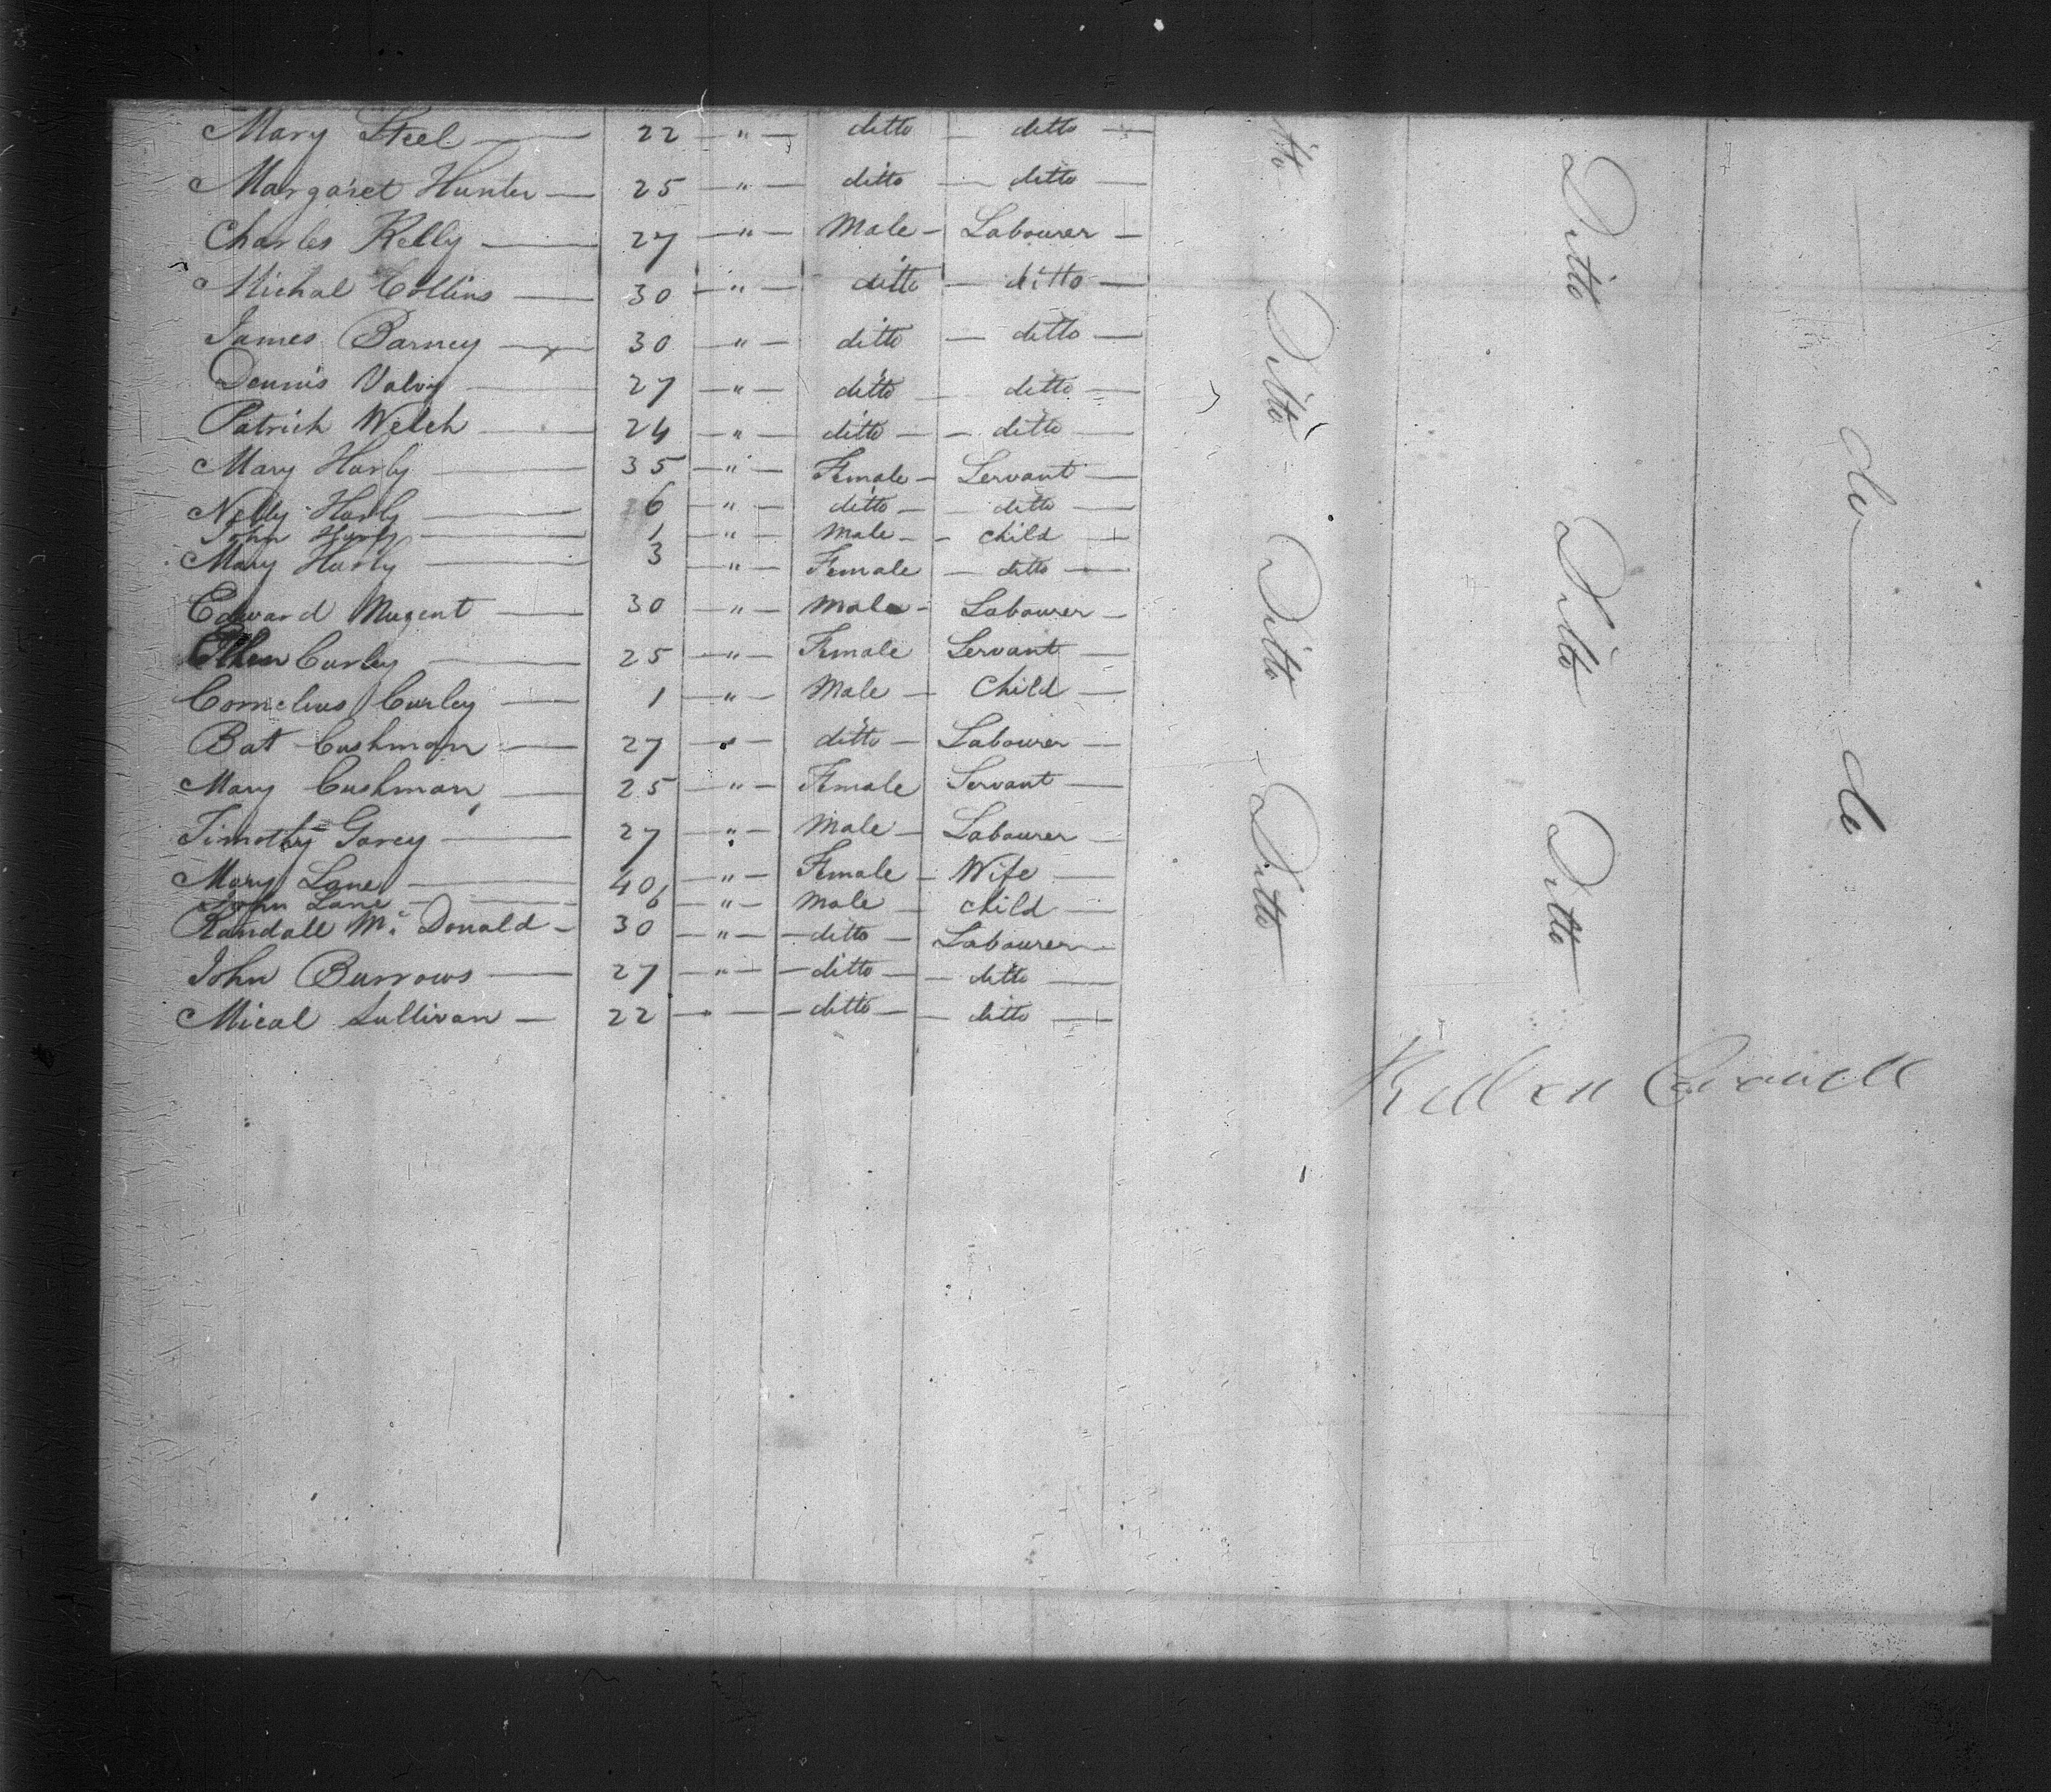 Mary Steel 22 " ditto ditto
Margaret Hunter 25 " ditto ditto
Charles Kelly 27 " Male Labourer
Michal Collins 30 " ditto ditto
James Barney 30 " ditto ditto
Dennis 27 " ditto ditto
Patrick Welch 24 " ditto ditto
Mary Harly 35 " Female Servant
Nelly Harly 6 " ditto ditto
John Harly 1 " Male Child
Mary Harly 3 " Female ditto
Edward Nugent 30 " Male Labourer
Ellen Curley 25 " Female Servant
Cornelius Curley 1 " Male Child
Bat Cushman 27 " ditto Labourer
Mary Cushman 25 " Female Servant
Timothy Gorey 27 " Male Labourer
Mary Lane 40 " Female Wife
John Lane 6 " Male Child
Randall Mc Donald 30 " ditto Labourer
John Burrows 27 " ditto ditto
Mical Sullivan 22 " ditto ditto
Ditto Ditto Ditto
Ditto Ditto Ditto
do do